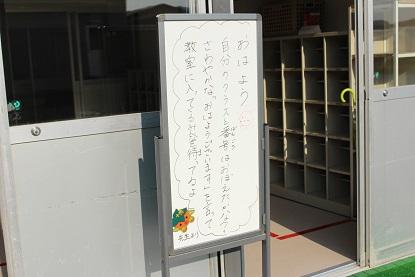 おはよう
自分のクラスと番号はおぼえたかな?
ばんごう
さわやかな「おはようございます」を言って
教室に入ってくるみんなを待ってるよ
先生より